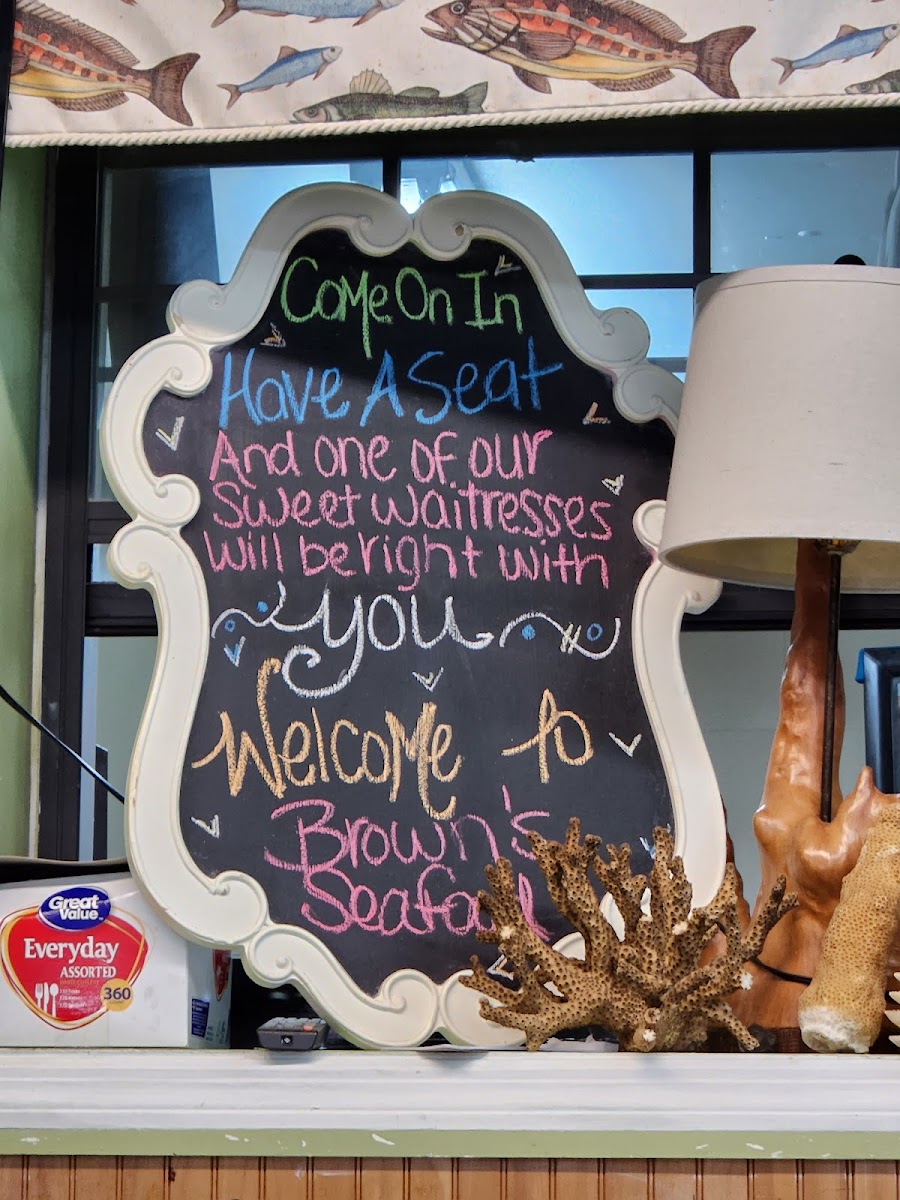 Come On In
Have A Seat
And one of our
Sweet waitresses
will be right with
you
Welcome to
Brown's
Seafood
Great
Value
Everyday
ASSORTED
360